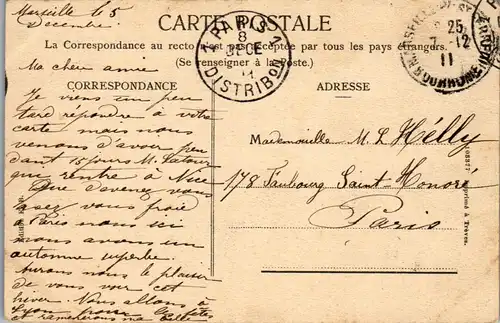 Marseille le 5
Decembre
CARTE POSTALE
La Correspondance au recto n'est pas acceptée par tous les pays étrangers.
(Se renseigner à la Poste.)
PARIS
8
DECE
11
DISTRIBON
25
7-12
11
Bses DU RHONE
CORRESPONDANCE
ADRESSE
Ma chere amie
Je viens un peu
tard repondre à votre
carte mais nous
venons d'avoir pen
dant 15 jours M. Latour
qui rentre à Nice
Que devenez vous
avez vous froid
à Paris nous ici
nous avons un
automne superbe.
Aurons nous le plaisir
de vous voir cet
hiver. Nous allons à
Lyon les fêtes
et ramènerons ma belle
Mademoiselle M L Hélly
178 Faubourg Saint-Honoré
Paris
Imprimé à Troyes.